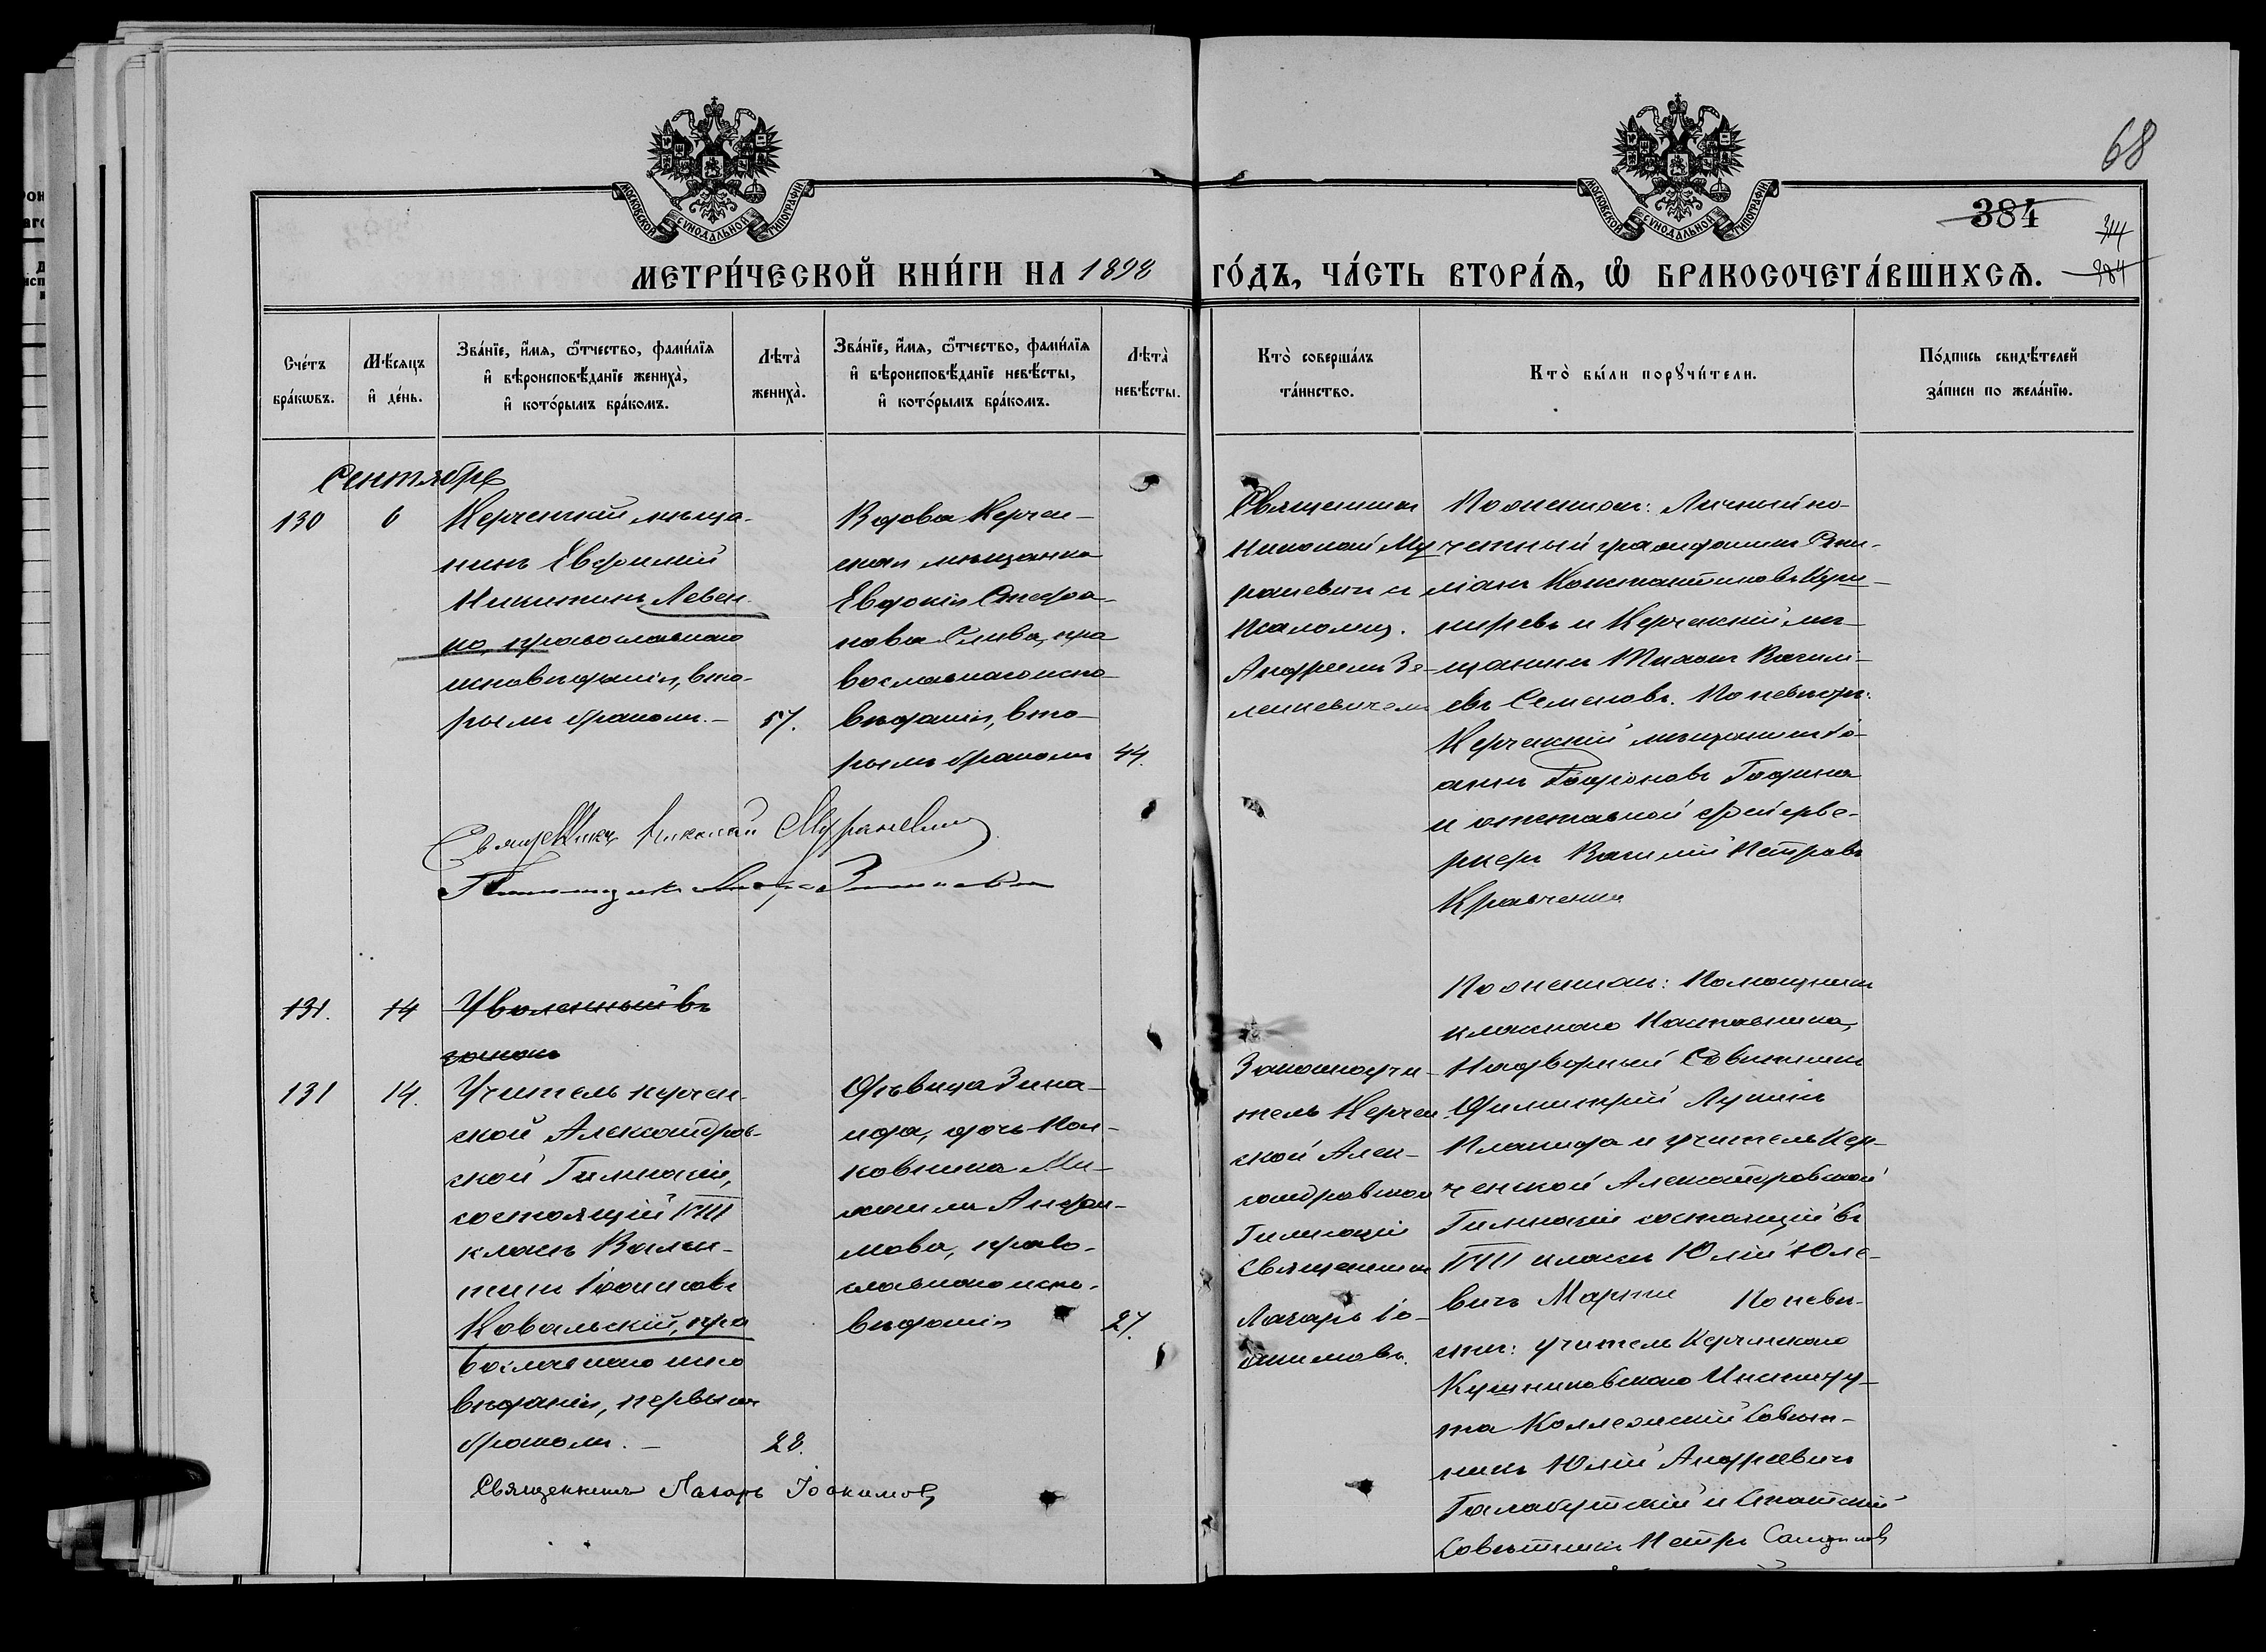 68
384
314
384
МОСКОВСКОЙ СѴНОДАЛЬНОЙ ТИПОГРАФІИ
МОСКОВСКОЙ СѴНОДАЛЬНОЙ ТИПОГРАФІИ
МЕТРИ́ЧЕСКОЙ КНИ́ГИ НА 1898 ГО́ДЪ, ЧА́СТЬ ВТОРА́Ѧ, Ѽ БРАКОСОЧЕТА́ВШИХСѦ.
Сче́тъ бра́кωвъ.
Мѣ́сѧцъ и҆ де́нь.
Зва́нїе, и҆́мѧ, ѻ҆́тчество, фами́лїѧ
и҆ вѣроисповѣ́данїе жениха̀,
и҆ кото́рымъ бра́комъ.
Лѣта̀ жениха̀.
Зва́нїе, и҆́мѧ, ѻ҆́тчество, фами́лїѧ
и҆ вѣроисповѣ́данїе невѣ́сты,
и҆ кото́рымъ бра́комъ.
Лѣта̀ невѣ́сты.
Кто̀ соверша́лъ
та́инство.
Кто̀ бы́ли порꙋчи́тели.
По́дпись свидѣ́телей
за́писи по жела́нїю.
Сентябрь
130
6
Керченскій мѣща-
нинъ Евфимій
Никитинъ Левен
ко, православнаго
исповѣданія, вто-
рымъ бракомъ.—
57.
Вдова Керчен-
ская мѣщанка
Евдокія Стефа-
нова Слива, пра
вославнаго испо-
вѣданія, вто-
рымъ бракомъ
44.
Священникъ
Николай Му
раневич и
Псаломщ.
Андреемъ Зе-
ленкевичемъ
По женихѣ: Личный по-
четный гражданинъ
Константиновъ
и Керченскій мѣ-
щанинъ Василі-
евъ Семеновъ. По невѣстѣ:
Керченскій мѣщанинъ Іо-
аннъ
и отставной фейерве-
ркеръ Василій Петровъ
Кравченко
Священникъ Николай Мураневич
Псаломщикъ
131.
14
Уволенный въ
запасъ
131
14.
Учитель керчен-
ской Александров-
ской Гимназіи,
состоящій VIII
класъ Вален-
тинъ
Ковальскій, пра
вославнаго испо
вѣданія, первымъ
бракомъ.—
28.
Дѣвица Зина-
ида, дочь Пол-
ковника Ми-
хаила
православ-
славнаго испо-
вѣданія
27.
Законоучи-
тель Керчен
ской Алек-
сандровской
Гимназіи
Священникъ
Лазарь Іо-
акимовъ.
По женихѣ: Помощникъ
класнаго Наставника,
Надворный Совѣтникъ
Димитрій Лукинъ
Плакида и учитель Кер-
ченской Александровской
Гимназіи состоящій въ
VIII класѣ Юлій Юлье-
вичъ Марти По невѣ-
стѣ: учитель Керченскаго
Кушниковскаго Институ-
та Коллежскій Совѣт-
никъ Юлій Андреевичъ
и Статскій
Совѣтникъ Петръ
Священникъ Лазарь Іоакимовъ